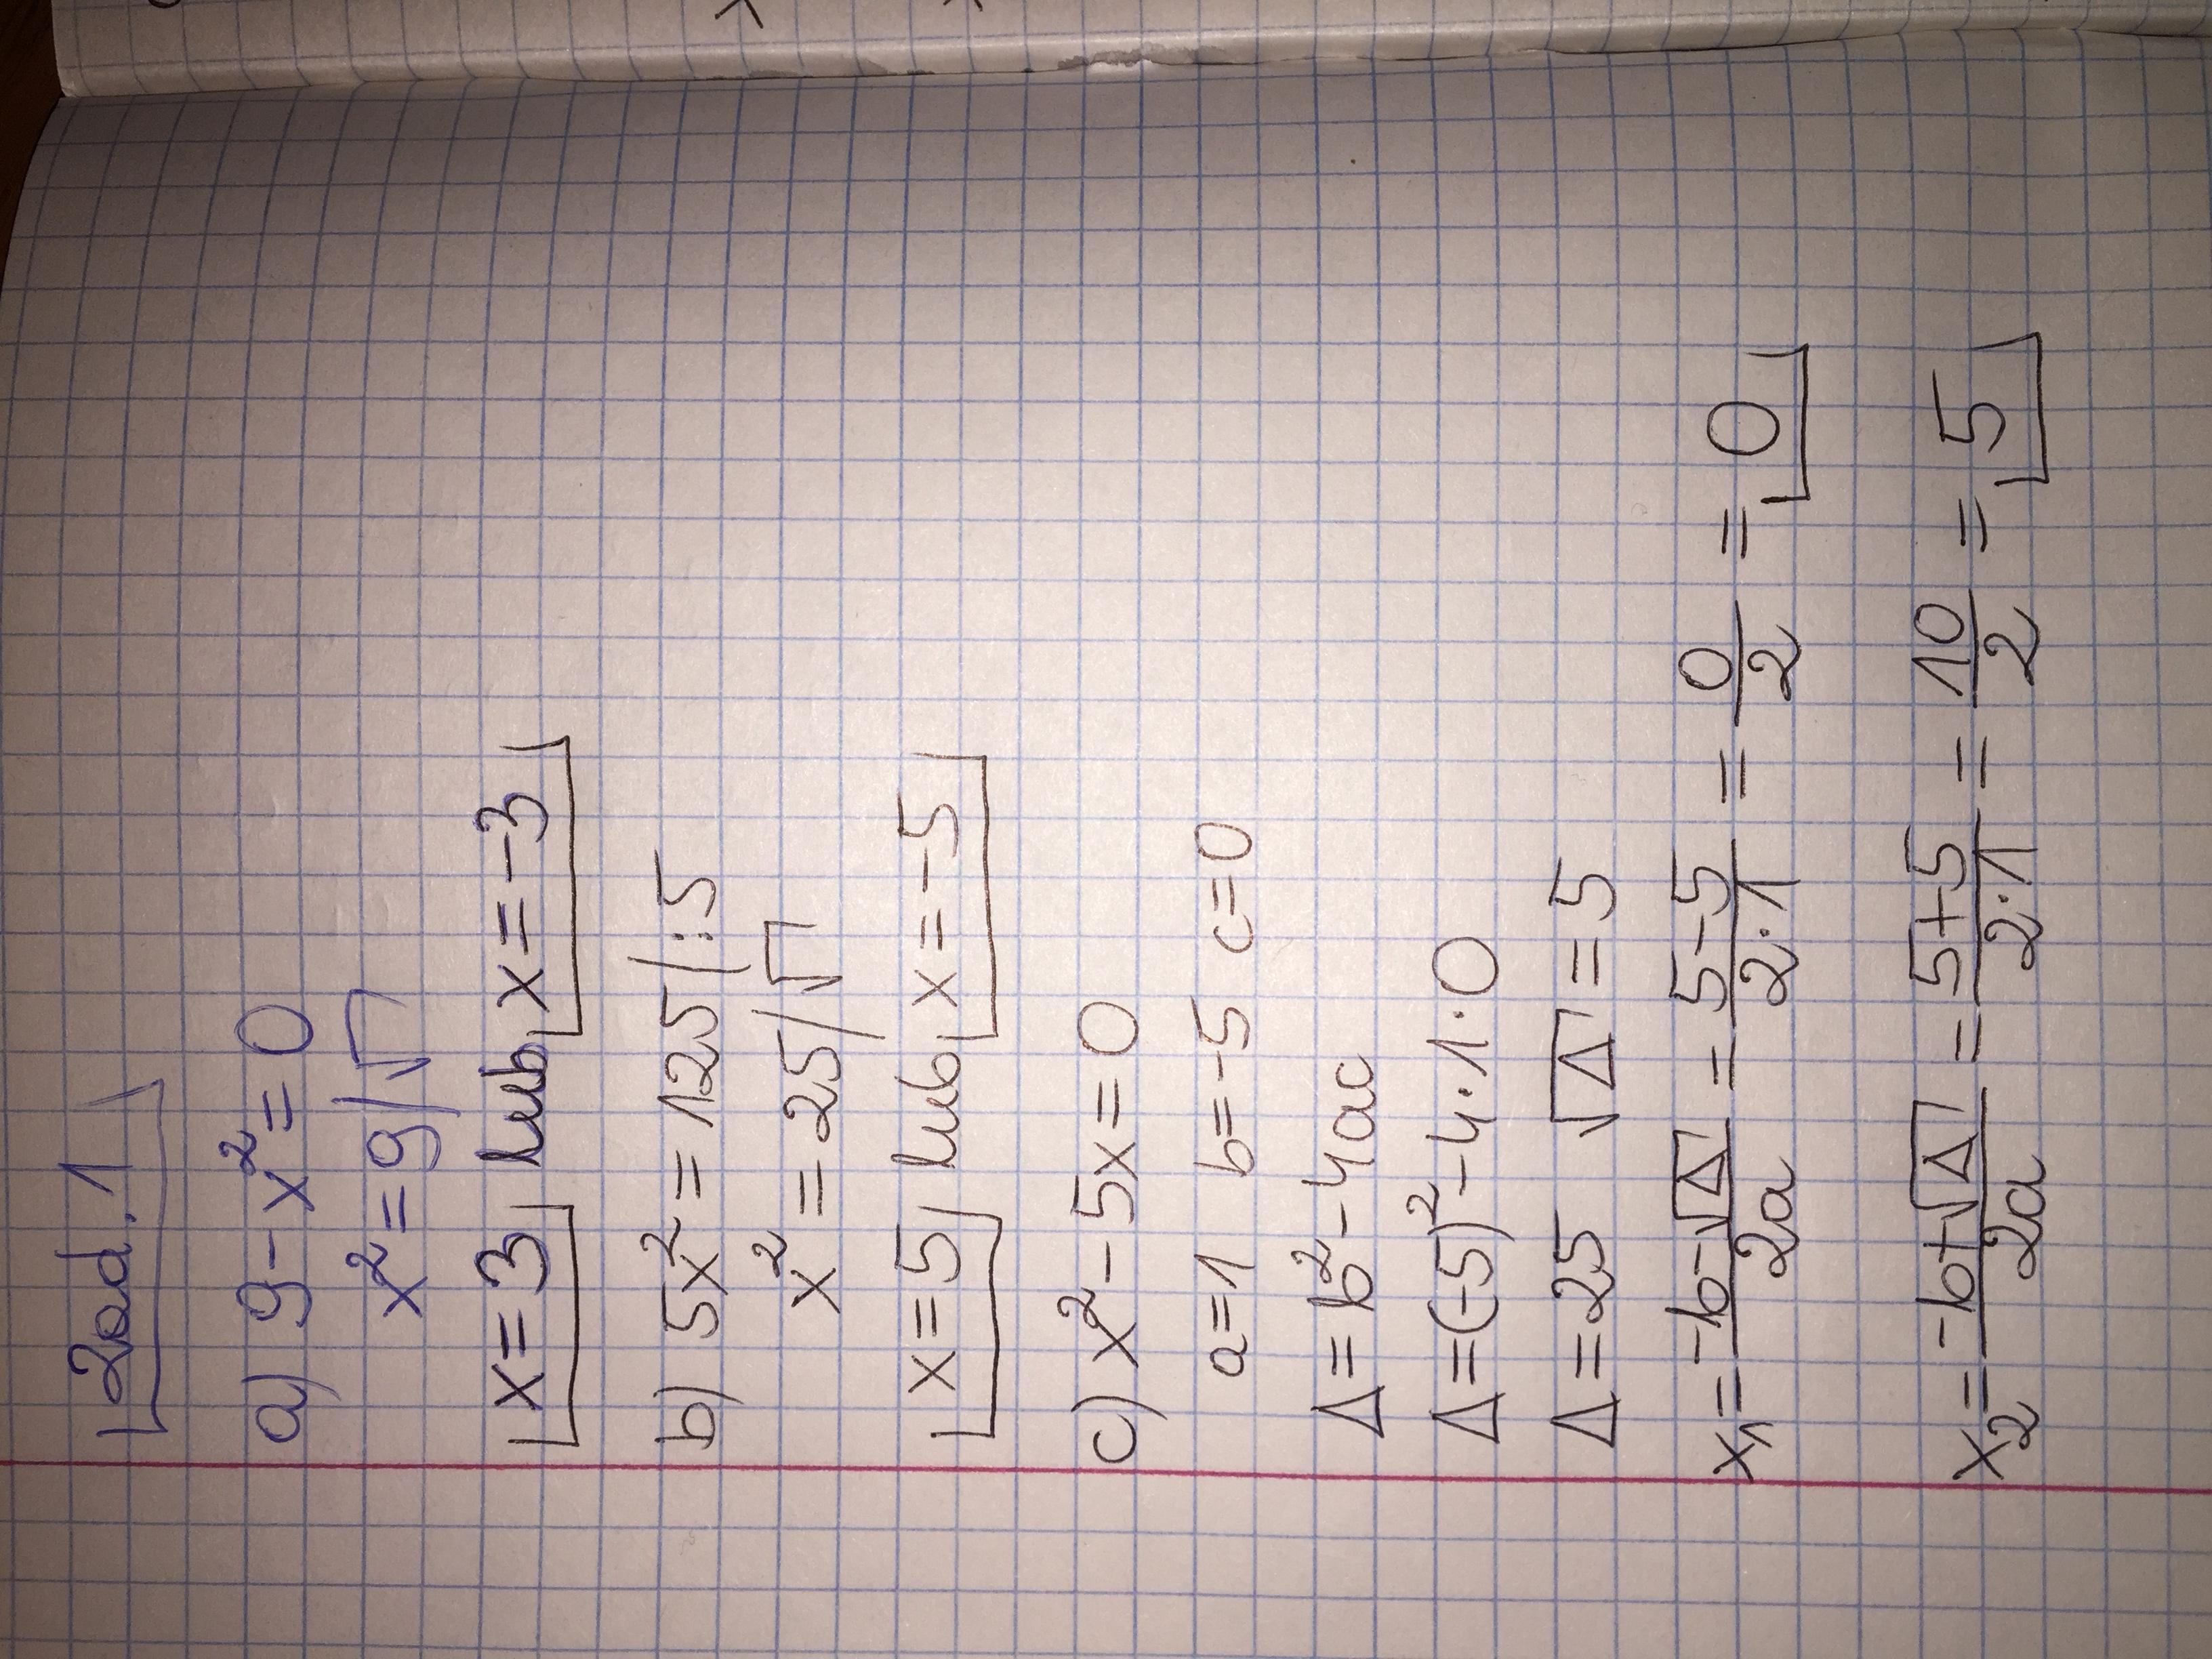 Zad. 1
a) 9-x²=0
x²=9/√
x=3 lub x=-3
b) 5x²=125/:5
x²=25/√
x=5 lub x=-5
c) x²-5x=0
a=1 b=-5 c=0
Δ=b²-4ac
Δ=(-5)²-4·1·0
Δ=25 √Δ=5
x₁=(-b-√Δ)/2a = (5-5)/(2·1) = 0/2 = 0
x₂=(-b+√Δ)/2a = (5+5)/(2·1) = 10/2 = 5